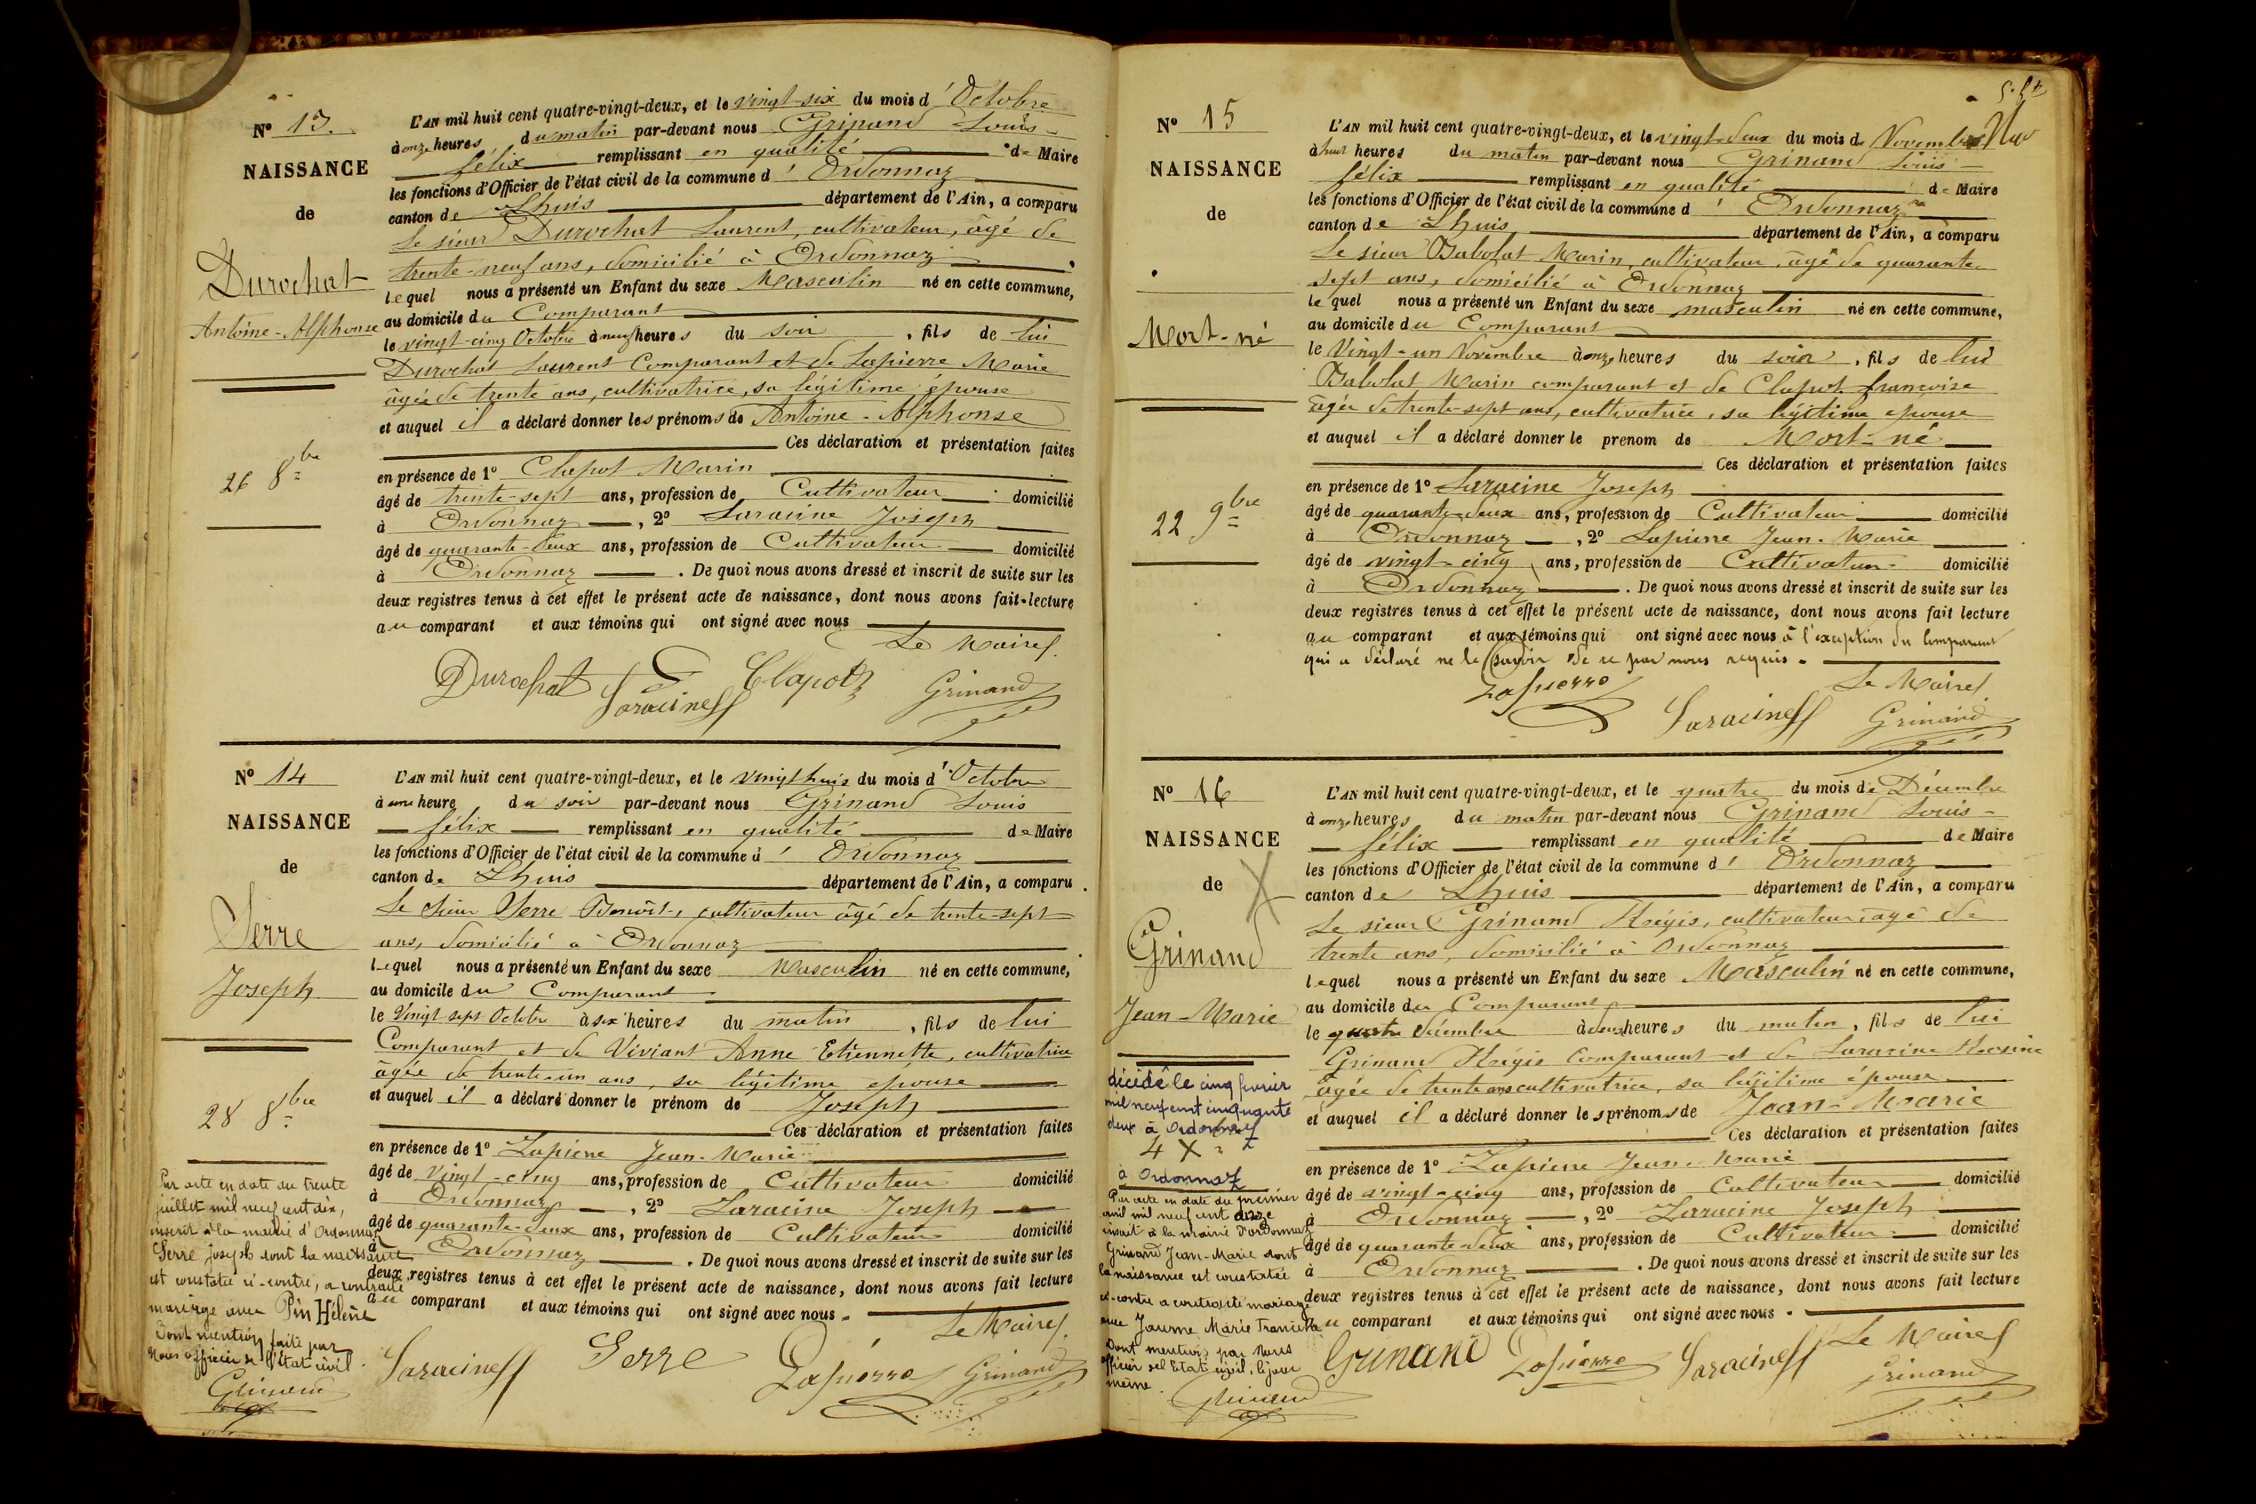 Nº 13.
NAISSANCE
de
Durochat
Antoine-Alphonse
26 8bre
L'AN mil huit cent quatre-vingt-deux, et le vingt-six du mois d'Octobre
à onze heures du matin par-devant nous Grinand Louis-
félix remplissant en qualité de Maire
les fonctions d'Officier de l'état civil de la commune d'Ordonnaz
canton de Lhuis département de l'Ain, a comparu
Le sieur Durochat Laurent, cultivateur, âgé de
trente-neuf ans, domicilié à Ordonnaz
lequel nous a présenté un Enfant du sexe Masculin né en cette commune,
au domicile du Comparant
le vingt-cinq Octobre à neuf heures du soir, fils de lui
Durochat Laurent Comparant et de Lapierre Marie
âgée de trente ans, cultivatrice, sa légitime épouse
et auquel il a déclaré donner les prénoms de Antoine-Alphonse
Ces déclaration et présentation faites
en présence de 1º Clapot Marin
âgé de trente-sept ans, profession de Cultivateur domicilié
à Ordonnaz, 2º Saracine Joseph
âgé de quarante-deux ans, profession de Cultivateur domicilié
à Ordonnaz. De quoi nous avons dressé et inscrit de suite sur les
deux registres tenus à cet effet le présent acte de naissance, dont nous avons fait lecture
au comparant et aux témoins qui ont signé avec nous
Le Maire
Durochat Saracine Clapot Grinand
Nº 14
NAISSANCE
de
Serre
Joseph
28 8bre
Par acte en date du trente
juillet mil neuf cent dix,
inscrit à la mairie d'Ordonnaz
Serre Joseph dont la naissance
est constatée ci-contre, a contracté
mariage avec Pin Hélène
Dont mention faite par
Nous officier de l'état civil.
Grinand
L'AN mil huit cent quatre-vingt-deux, et le vingt huit du mois d'Octobre
à une heure du soir par-devant nous Grinand Louis
félix remplissant en qualité de Maire
les fonctions d'Officier de l'état civil de la commune d'Ordonnaz
canton de Lhuis département de l'Ain, a comparu
Le sieur Serre Benoît, cultivateur âgé de trente-sept
ans, domicilié à Ordonnaz
lequel nous a présenté un Enfant du sexe Masculin né en cette commune,
au domicile du Comparant
le Vingt sept Octobre à six heures du matin, fils de lui
Comparant et de Viviant Anne Etiennette, cultivatrice
âgée de trente-un ans, sa légitime épouse
et auquel il a déclaré donner le prénom de Joseph
Ces déclaration et présentation faites
en présence de 1º Lapierre Jean-Marie
âgé de vingt-cinq ans, profession de Cultivateur domicilié
à Ordonnaz, 2º Saracine Joseph
âgé de quarante-deux ans, profession de Cultivateur domicilié
à Ordonnaz. De quoi nous avons dressé et inscrit de suite sur les
deux registres tenus à cet effet le présent acte de naissance, dont nous avons fait lecture
au comparant et aux témoins qui ont signé avec nous.
Le Maire
Saracine Serre Lapierre Grinand
Nº 15
NAISSANCE
de
Mort-né
22 9bre
L'AN mil huit cent quatre-vingt-deux, et le vingt-deux du mois de Novembre
à huit heures du matin par-devant nous Grinand Louis
félix remplissant en qualité de Maire
les fonctions d'Officier de l'état civil de la commune d'Ordonnaz
canton de Lhuis département de l'Ain, a comparu
Le sieur Babolat Marin, cultivateur, âgé de quarante-
sept ans, domicilié à Ordonnaz
lequel nous a présenté un Enfant du sexe masculin né en cette commune,
au domicile du Comparant
le Vingt-un Novembre à onze heures du soir, fils de lui
Babolat Marin comparant et de Clapot françoise
âgée de trente-sept ans, cultivatrice, sa légitime épouse
et auquel il a déclaré donner le prenom de Mort-né
Ces déclaration et présentation faites
en présence de 1º Saracine Joseph
âgé de quarante-deux ans, profession de Cultivateur domicilié
à Ordonnaz, 2º Lapierre Jean-Marie
âgé de vingt-cinq ans, profession de Cultivateur domicilié
à Ordonnaz. De quoi nous avons dressé et inscrit de suite sur les
deux registres tenus à cet effet le présent acte de naissance, dont nous avons fait lecture
au comparant et aux témoins qui ont signé avec nous à l'exception du comparant
qui a déclaré ne le savoir de ce par nous requis.
Le Maire
Lapierre Saracine Grinand
Nº 16
NAISSANCE
de
Grinand
Jean-Marie
décédé le cinq fevrier
mil neuf cent cinquante
deux à Ordonnaz
à Ordonnaz
Par acte en date du premier
avril mil neuf cent onze
inscrit à la mairie d'Ordonnaz
Grinand Jean-Marie dont
la naissance est constatée
ci-contre a contracté mariage
avec Jaume Marie
Dont mention par Nous
officier de l'Etat civil, le jour
même.
Grinand
L'AN mil huit cent quatre-vingt-deux, et le quatre du mois de Décembre
à onze heures du matin par-devant nous Grinand Louis-
félix remplissant en qualité de Maire
les fonctions d'Officier de l'état civil de la commune d'Ordonnaz
canton de Lhuis département de l'Ain, a comparu
Le sieur Grinand Régis, cultivateur, âgé de
trente ans, domicilié à Ordonnaz
lequel nous a présenté un Enfant du sexe Masculin né en cette commune,
au domicile du Comparant
le quatre décembre à deux heures du matin, fils de lui
Grinand Régis Comparant et de Saracine
âgée de trente ans cultivatrice, sa légitime épouse
et auquel il a déclaré donner les prénoms de Jean-Marie
Ces déclaration et présentation faites
en présence de 1º Lapierre Jean-Marie
âgé de vingt-cinq ans, profession de Cultivateur domicilié
à Ordonnaz, 2º Saracine Joseph
âgé de quarante deux ans, profession de Cultivateur domicilié
à Ordonnaz. De quoi nous avons dressé et inscrit de suite sur les
deux registres tenus à cet effet le présent acte de naissance, dont nous avons fait lecture
au comparant et aux témoins qui ont signé avec nous.
Le Maire
Grinand Lapierre Saracine Grinand